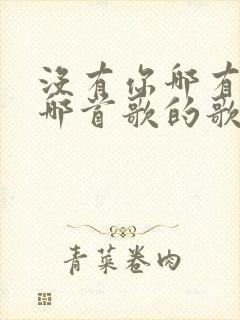 没有你哪有
哪首歌的歌
青菜卷肉